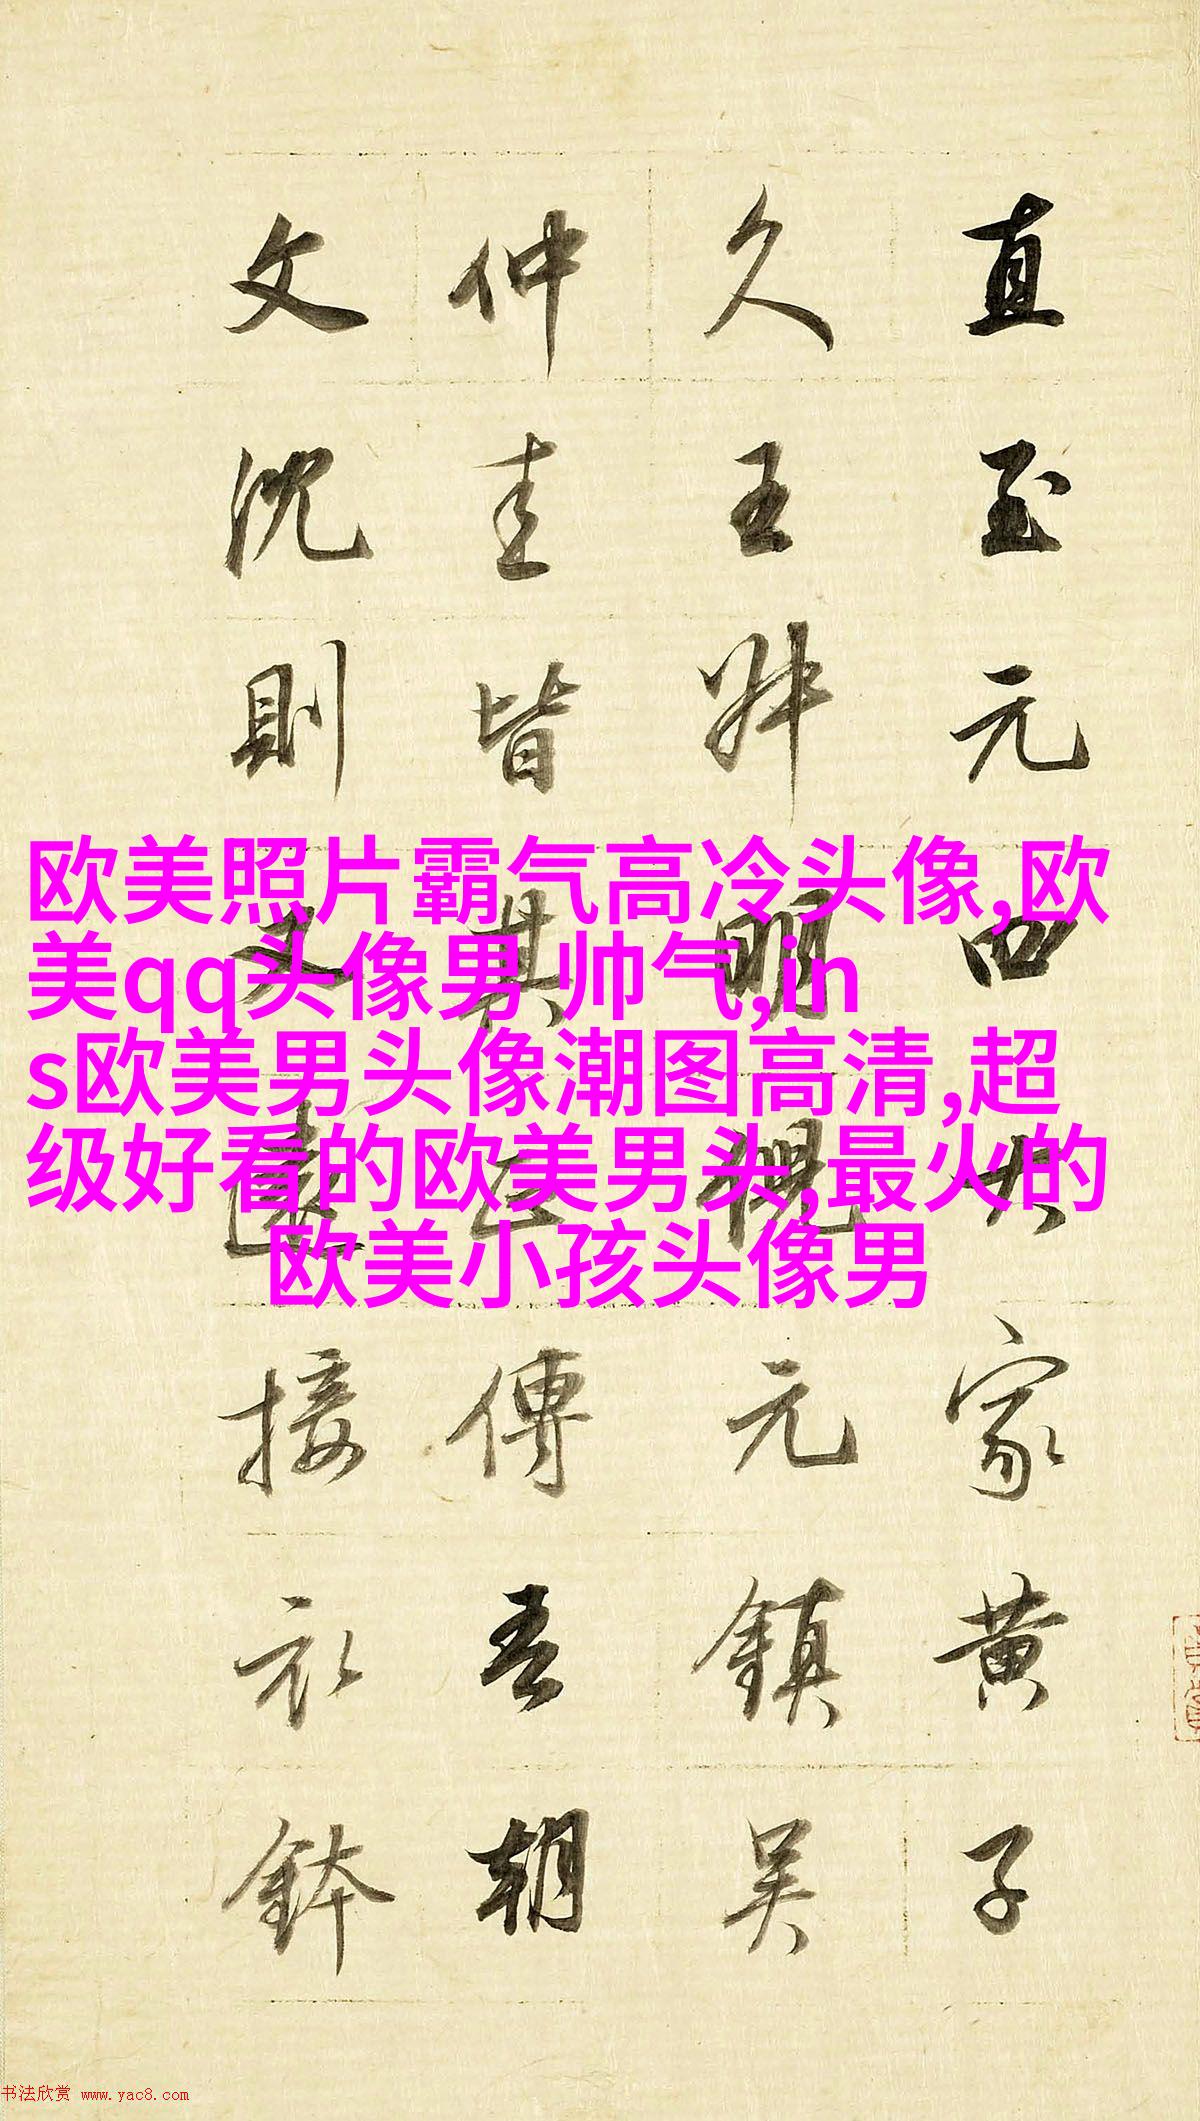 直至元四大家黄子
久王叔明倪元鎮吴
仲圭皆其正傳吾朝
文沈則又遠接衣鉢
欧美照片霸气高冷头像,欧
美qq头像男 帅气,in
s欧美男头像潮图高清,超
级好看的欧美男头,最火的
欧美小孩头像男
书法欣赏 www.yac8.com